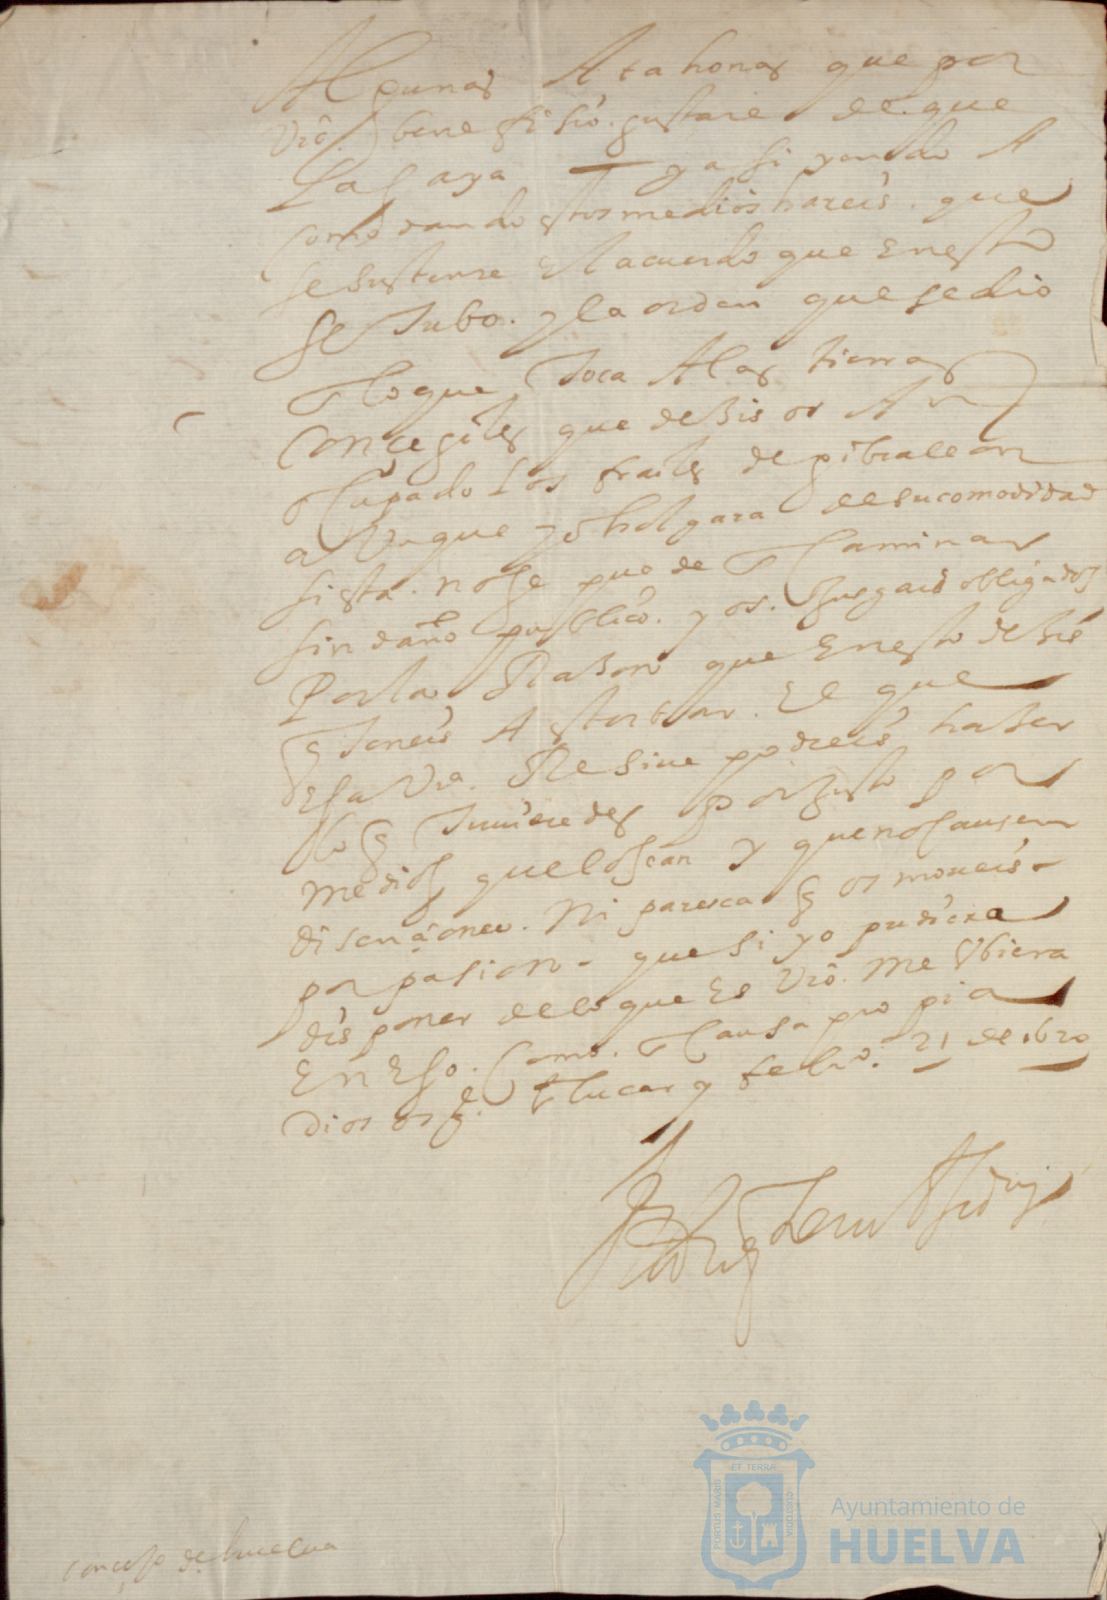 Algunas Atahonas que por
Vro. benefiçio. gustare de. que
las aya — y asi yendo A
comodando estos medios hareis. que
se sustente El acuerdo que En esto
se Tubo. y la orden que se dio
lo que Toca A las tierras
Conçegiles que desis os An
Cupado los frailes de gibraleon
a Unque yo holgara de su comodidad
fista. no se puede Caminar
sin daño publico. y os. Jusgais obligados
Por la Rason que En esto desis
q Teneis A estorbar. El que
Esa Va. Resiue podreis haser
lo q Tuuieredes por Justo por
medios que lo sean y que no causen
disençiones. Ni paresca q os moueis-
por pasion- que si yo pudiera
disponer de lo que Es Vro. Me Vbiera
En Eso. Como. Causa propia
Dios os ge. Sanlucar y febro. 21 de 1620
conçejo de huelua
PORTUS MARIS
ET TERRÆ
CUSTODIA
Ayuntamiento de
HUELVA